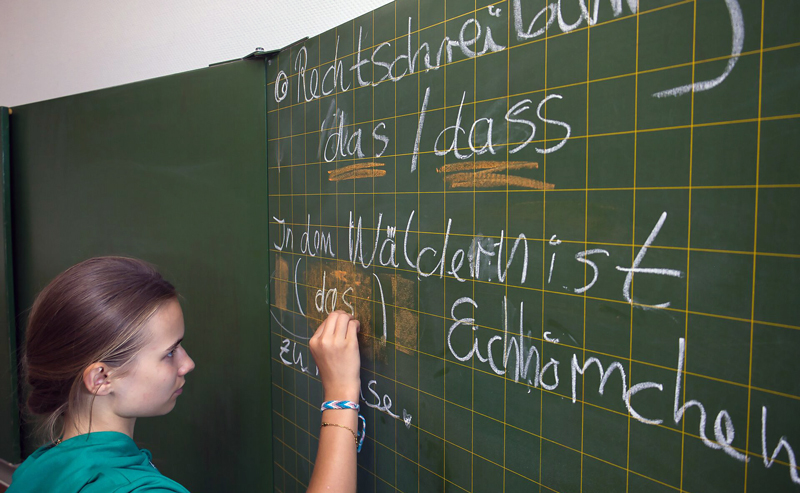 Rechtschreibung
das/dass
In dem Wäldern ist
(das) Eichhörnchen
zu Hause.